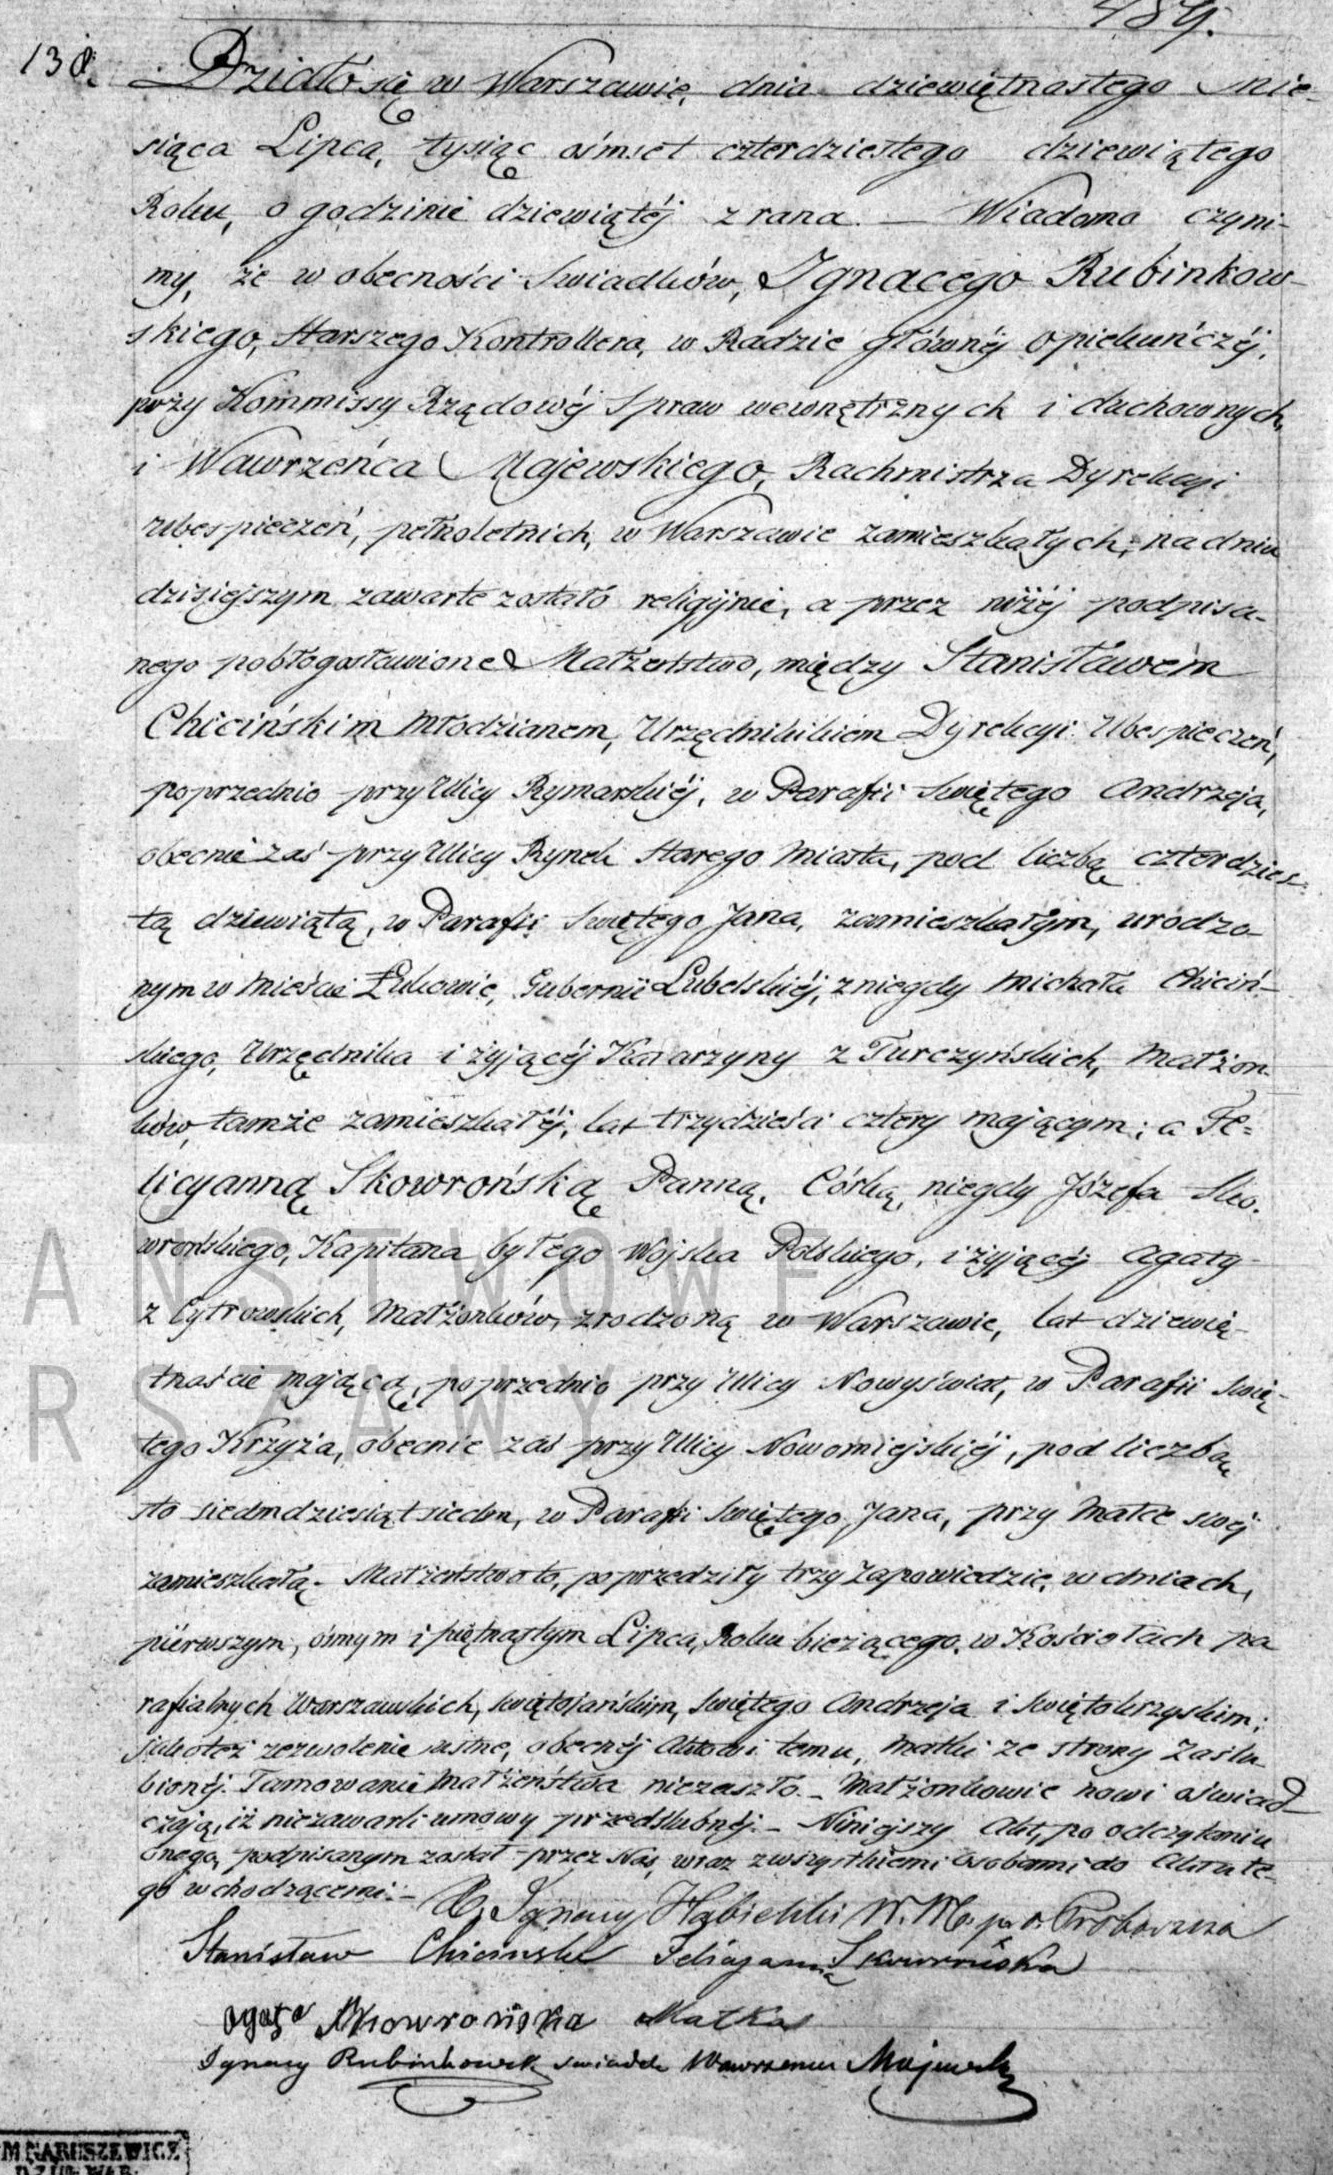 138.
Działo się w Warszawie, dnia dziewiętnastego Mie-
siąca Lipca, tysiąc ośmset czterdziestego dziewiątego
Roku, o godzinie dziewiątéj z rana. — Wiadomo czyni-
my, że w obecności Swiadków, Ignacego Rubinkow-
skiego, Starszego Kontrollera, w Radzie głównéj opiekuńczéj,
przy Kommissyi Rządowéj Spraw wewnętrznych i duchownych,
i Wawrzeńca Majewskiego, Rachmistrza Dyrekcyi
ubespieczeń, pełnoletnich, w Warszawie zamieszkałych; na dniu
dzisiejszym zawarte zostało religijnie, a przez niżéj podpisa-
nego pobłogosławione Małżeństwo, między Stanisławem
Chicińskim Młodzianem, Urzędnikikiem Dyrekcyi Ubespieczeń,
poprzednio przy Ulicy Rymarskiéj, w Parafii Swiętego Andrzeja,
obecnie zaś przy Ulicy Rynek Starego Miasta, pod liczbą czterdzies-
tą dziewiątą, w Parafii Swiętego Jana, zamieszkałym, urodzo-
nym w Mieście Łukowie, Gubernii Lubelskiéj, z niegdy Michała Chiciń-
skiego, Urzędnika i żyjącéj Katarzyny z Turczyńskich, Małżon-
ków, tamże zamieszkałéj, lat trzydzieści cztery mającym; a Fe-
licyanną Skowrońską Panną, Córką, niegdy Józefa Sko-
wrońskiego, Kapitana byłego Wojska Polskiego, i żyjącéj Agaty
z Cytrowskich, Małżonków, zrodzoną w Warszawie, lat dziewię-
tnaście mającą, poprzednio przy Ulicy Nowyświat, w Parafii Swię-
tego Krzyża, obecnie zaś przy Ulicy Nowomiejskiéj, pod liczbą
sto siedmdziesiąt siedm, w Parafii Swiętego Jana, przy Matce swéj
zamieszkałą. Małżeństwo to, poprzedziły trzy Zapowiedzie, w dniach,
piérwszym, ósmym i piętnastym Lipca, Roku bieżącego, w Kościołach pa
rafialnych Warszawskich, Swiętojańskim, Swiętego Andrzeja i Swiętokrzyskim;
jakoteż zezwolenie ustne, obecnéj Aktowi temu, Matki ze strony Zaślu
bionéj. Tamowanie Małżeństwa niezaszło. – Małżonkowie nowi oświad-
czają, iż niezawarli umowy przedślubnéj. – Niniejszy Akt, po odczytaniu
onego, podpisanym został przez Nas, wraz z wszystkiemi Osobami do Aktu te-
go wchodzącemi. –
X. Ignacy Hąbielski W. M. p. o. Proboszcza
Stanisław Chiciński Felicyanna Skowrońska
Agata Skowrońska Matka
Ignacy Rubinkowski swiadek Wawrzeniec Majewski
AŃSTWOWE
RSZAWY
M NARUSZEWICZ